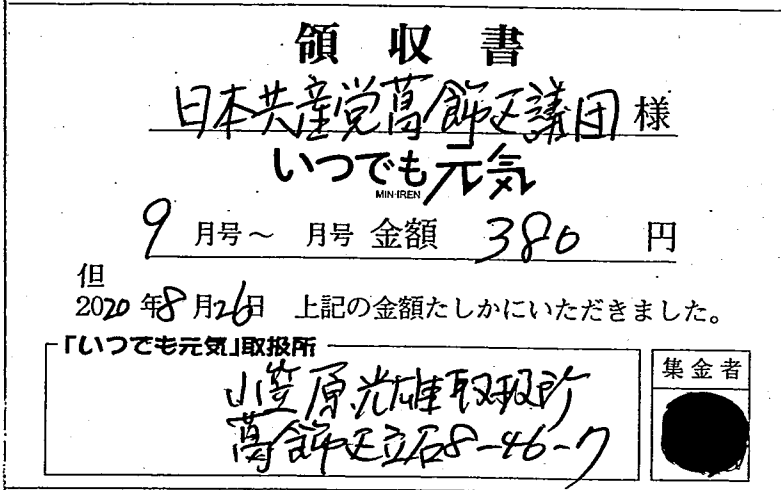 領収書
日本共産党葛飾区議団様
いつでも元気
MIN-IREN
9月号～ 月号 金額 380 円
但
2020年8月26日 上記の金額たしかにいただきました。
「いつでも元気」取扱所
小笠原光雄取扱所
葛飾区立石8-46-7
集金者